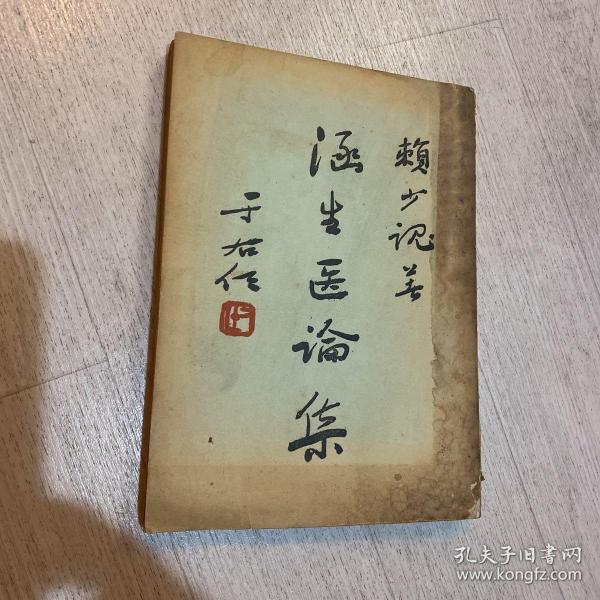 賴少魂著
涵生医論集
于右任
孔夫子旧书网
www.kongfz.com